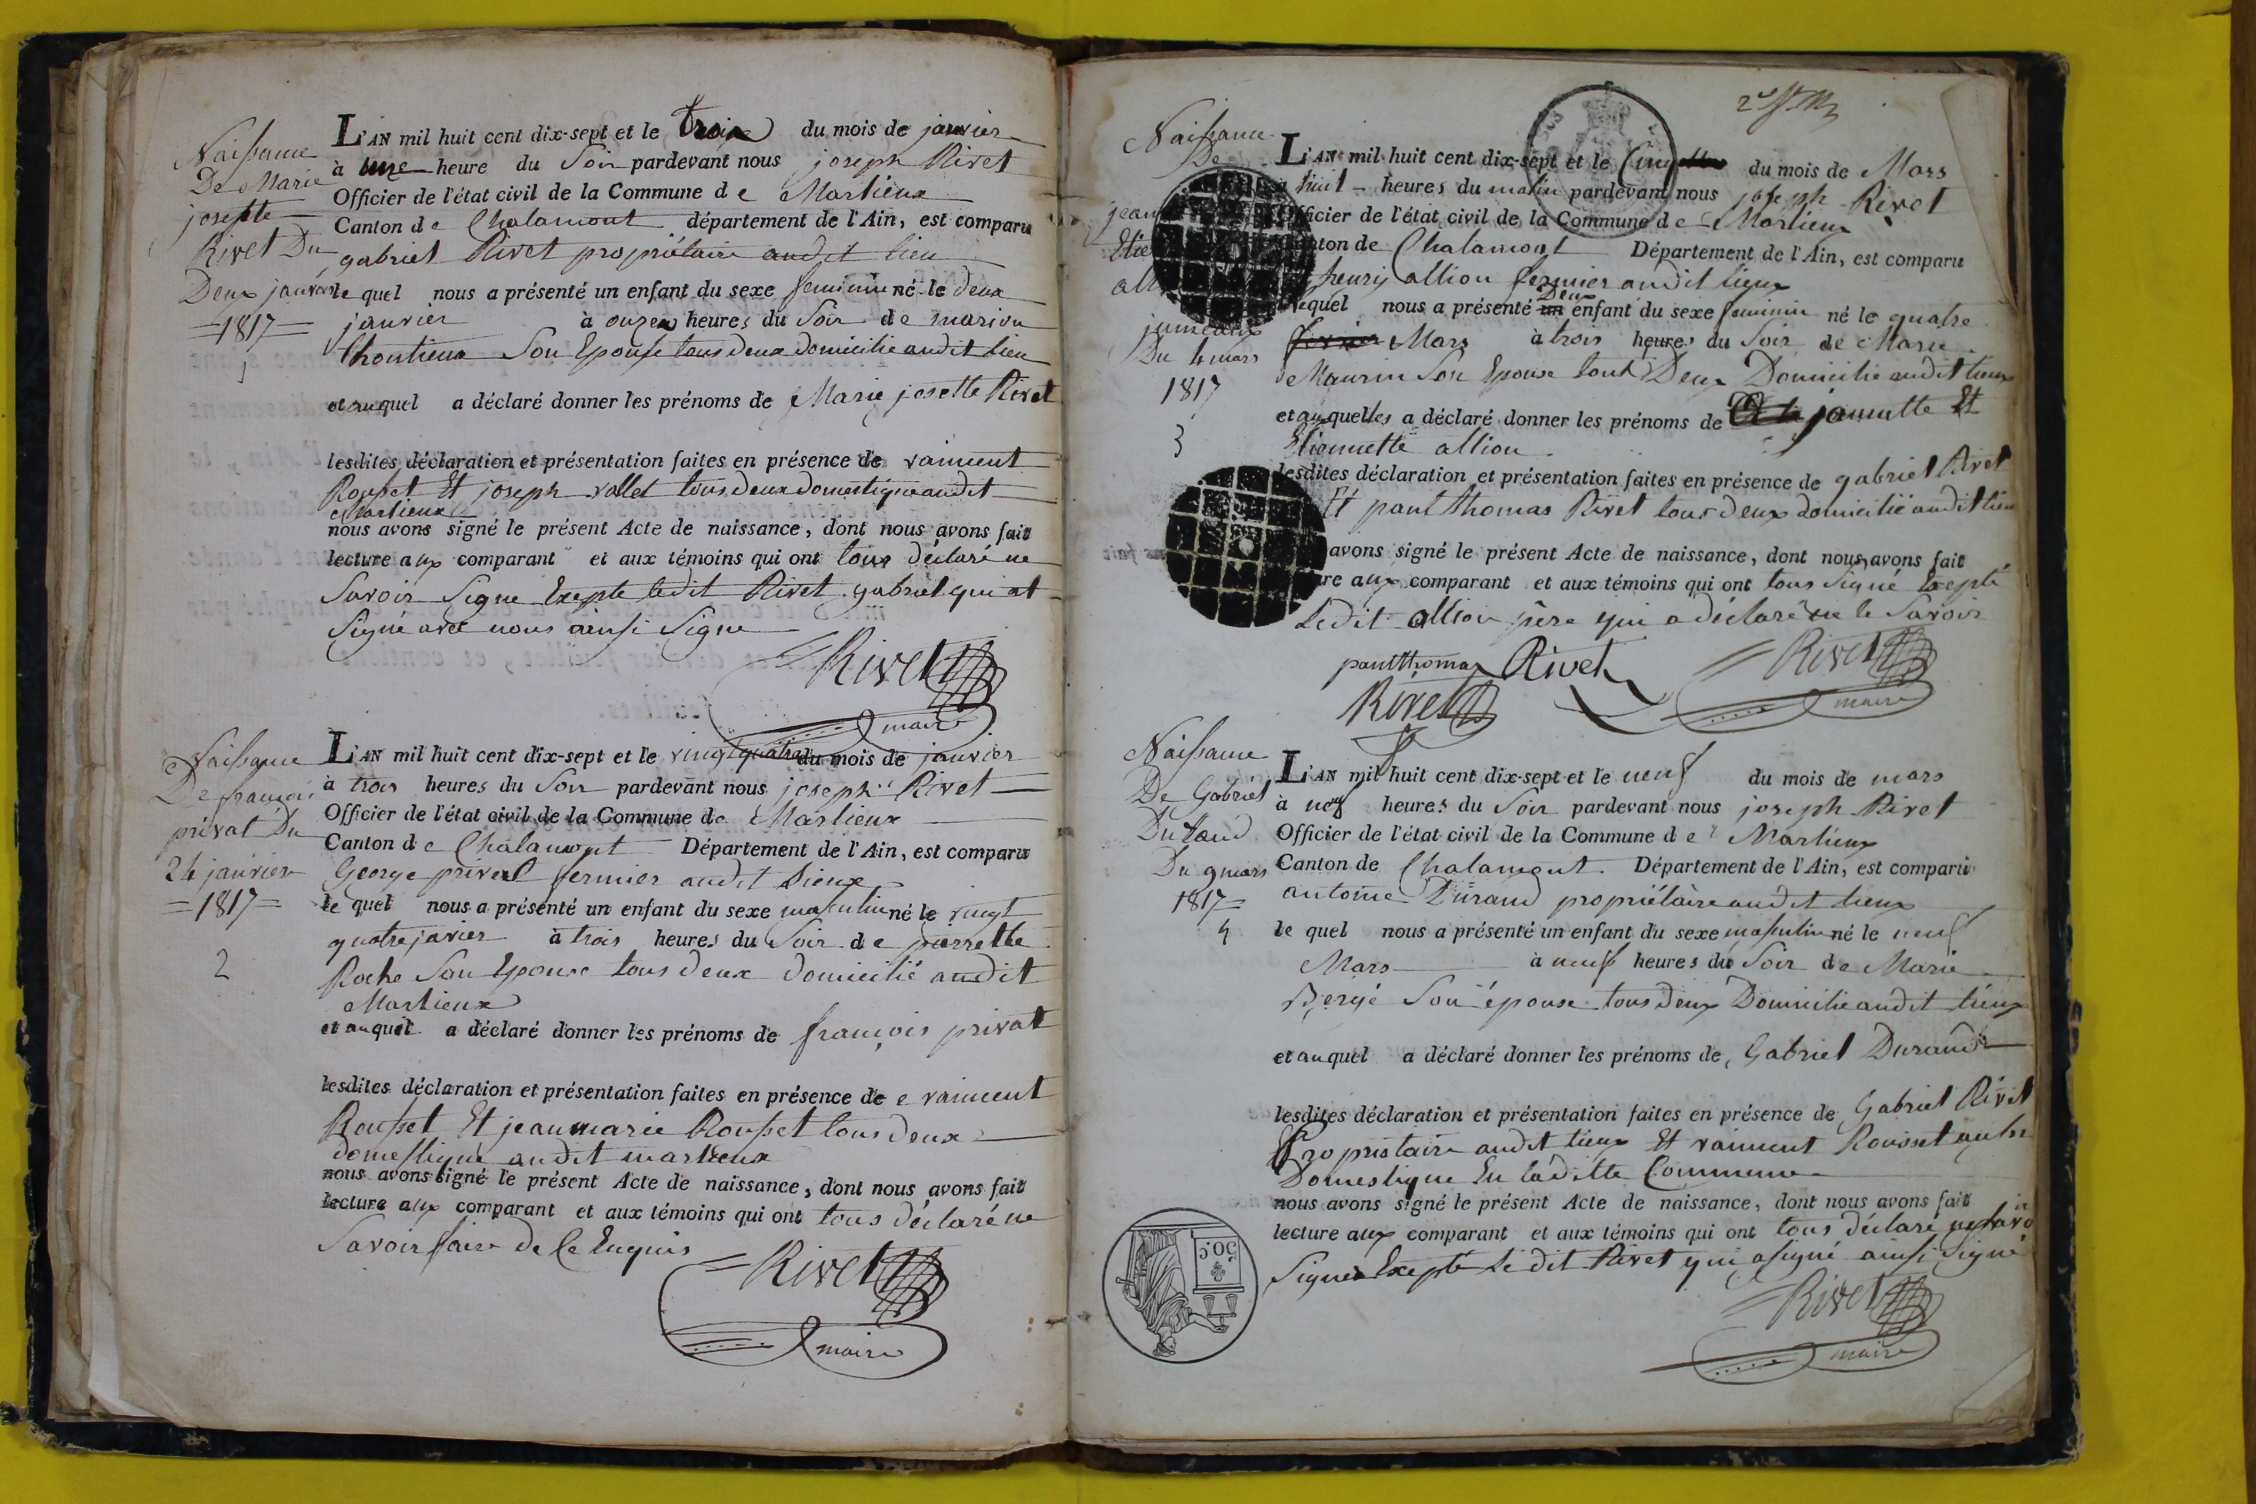 Naissance
De Marie
josepte
Rivet Du
Deux janvier
=1817=
1
L'AN mil huit cent dix-sept et le trois du mois de janvier
à une heure du Soir pardevant nous joseph Rivet
Officier de l'état civil de la Commune de Marlieux
Canton de Chalamont département de l'Ain, est comparu
gabriel Rivet propriétaire audit lieu
le quel nous a présenté un enfant du sexe feminin né le deux
janvier à onze heures du Soir de marion
Chontieux Son Epouse tous deux domicilié audit lieu
et auquel a déclaré donner les prénoms de Marie josette Rivet
lesdites déclaration et présentation faites en présence de vainuent
Rousset Et joseph vallet tous deux domestique audit
Marlieux
nous avons signé le présent Acte de naissance, dont nous avons fait
lecture aux comparant et aux témoins qui ont tous déclaré ne
Savoir Signe Exepte ledit Rivet gabriel qui at
Signé avec nous ainsi Signe
Rivet
maire
Naissance
De françois
privat Du
24 janvier
=1817=
2
L'AN mil huit cent dix-sept et le vingt quatre du mois de janvier
à trois heures du Soir pardevant nous joseph Rivet
Officier de l'état civil de la Commune de Marlieux
Canton de Chalamont Département de l'Ain, est comparu
George privat fermier audit Lieux
le quel nous a présenté un enfant du sexe masculin né le vingt
quatre javier à trois heures du Soir de pierrette
Roche Son Epouse tous deux domicilié audit
Marlieux
et auquel a déclaré donner les prénoms de françois privat
lesdites déclaration et présentation faites en présence de vainuent
Rousset Et jean marie Rousset tous deux
domestique audit marlieux
nous avons signé le présent Acte de naissance, dont nous avons fait
lecture aux comparant et aux témoins qui ont tous déclaré ne
Savoir faire De Ce Enquis
Rivet
maire
Naissance
De
jean
Etie
all
jumeaux
Du 4 mars
1817
3
L'AN mil huit cent dix-sept et le Cinq du mois de Mars
à huit heures du matin pardevant nous joseph Rivet
Officier de l'état civil de la Commune de Marlieux
Canton de Chalamont Département de l'Ain, est comparu
henry allion fermier audit lieux
lequel nous a présenté un Deux enfant du sexe feminin né le quatre
fevrier Mars à trois heures du Soir de Marie
Maurin Son Epouse tout Deux Domicilie audit lieux
et auxquelles a déclaré donner les prénoms de jannette Et
Etiennette allion
lesdites déclaration et présentation faites en présence de gabriel Rivet
Et paul thomas Rivet tous deux domicilié audit lieu
avons signé le présent Acte de naissance, dont nous avons fait
re aux comparant et aux témoins qui ont tous Signé Exepté
Ledit allion père qui a déclaré ne le Savoir
paul thomas Rivet
Rivet
Rivet
maire
Naissance
De Gabriel
Durand
Du 9 mars
1817=
4
L'AN mil huit cent dix-sept et le neuf du mois de mars
à neuf heures du Soir pardevant nous joseph Rivet
Officier de l'état civil de la Commune de Marlieux
Canton de Chalamont Département de l'Ain, est comparu
antoine Durand propriétaire audit lieux
le quel nous a présenté un enfant du sexe masculin né le neuf
Mars à neuf heures du Soir de Marie
Bergé Son épouse tous deux Domicilie audit lieux
et auquel a déclaré donner les prénoms de Gabriel Durand
lesdites déclaration et présentation faites en présence de Gabriel Rivet
Propriétaire audit lieux Et vainuent Rousset
Domestique En laditte Commune
nous avons signé le présent Acte de naissance, dont nous avons fait
lecture aux comparant et aux témoins qui ont tous déclaré ne Savoir
Signer Exepté Ledit Rivet qui a signé ainsi Signé
50 C.
Rivet
maire